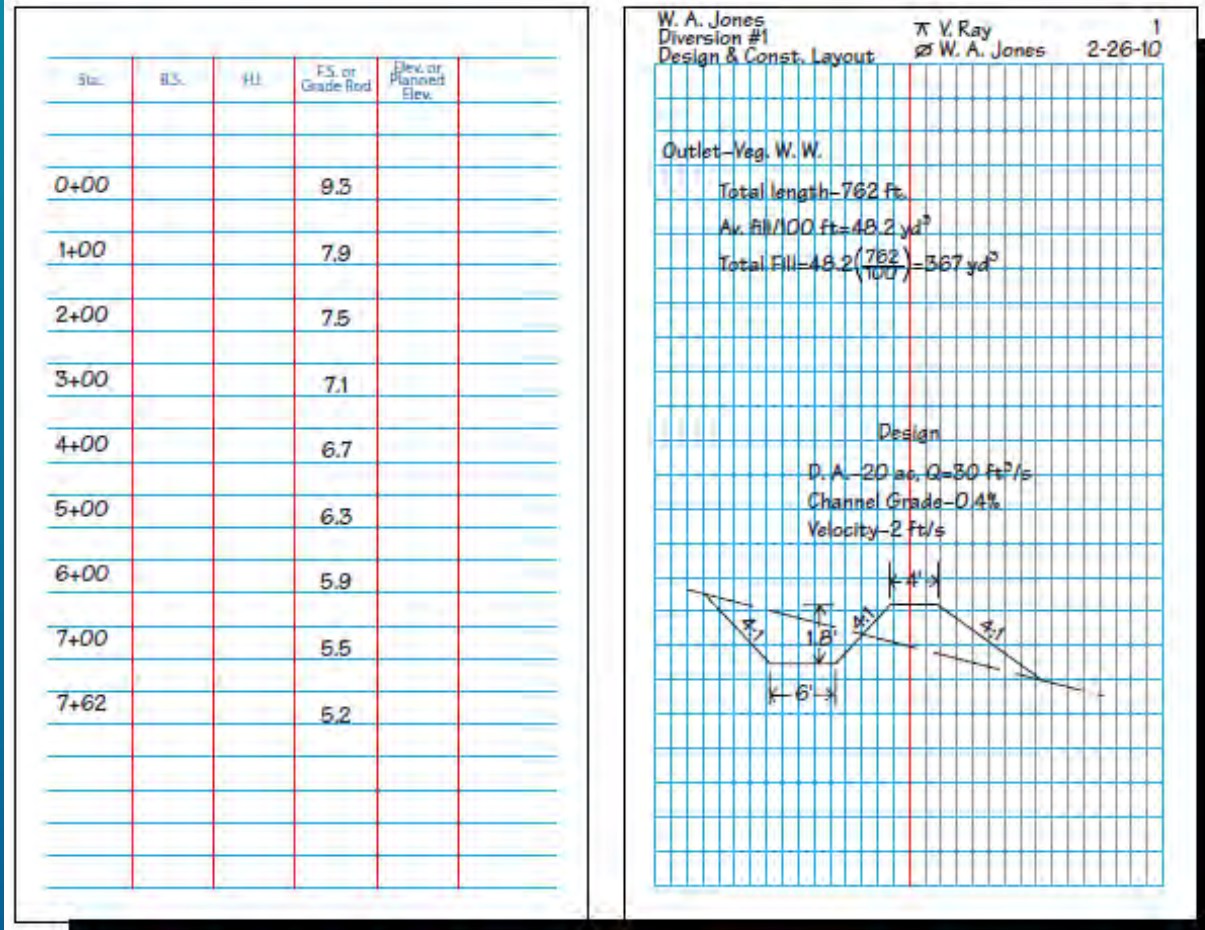 Sta. B.S. H.I. F.S. or Grade Rod Elev. or Planned Elev.
0+00 9.3
1+00 7.9
2+00 7.5
3+00 7.1
4+00 6.7
5+00 6.3
6+00 5.9
7+00 5.5
7+62 5.2
W. A. Jones
Diversion #1
Design & Const. Layout
⊼ V. Ray
ø W. A. Jones
1
2-26-10
Outlet–Veg. W. W.
Total length–762 ft.
Av. fill/100 ft=48.2 yd³
Total Fill=48.2(762/100)=367 yd³
Design
D. A.–20 ac, Q=30 ft³/s
Channel Grade–0.4%
Velocity–2 ft/s
4'
4:1
1.8'
4:1
4:1
6'